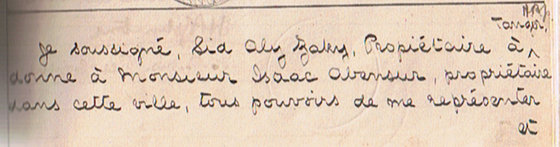 Tanger,
Je soussigné, Sid Aly Zaky, Propriétaire à
donne à Monsieur Isaac Abensur, propriétaire
dans cette ville, tous pouvoirs de me représenter
et